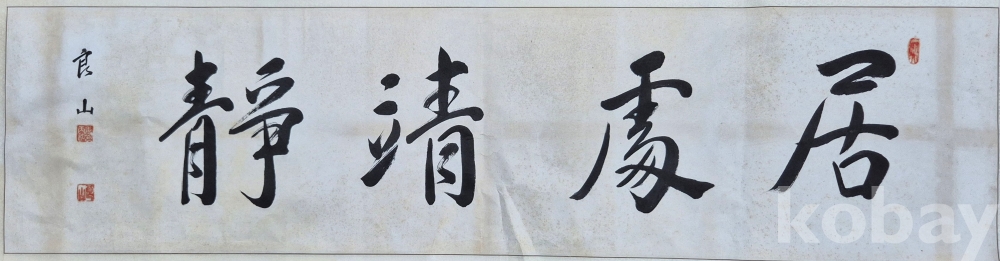 居處靖靜
良山
kobay